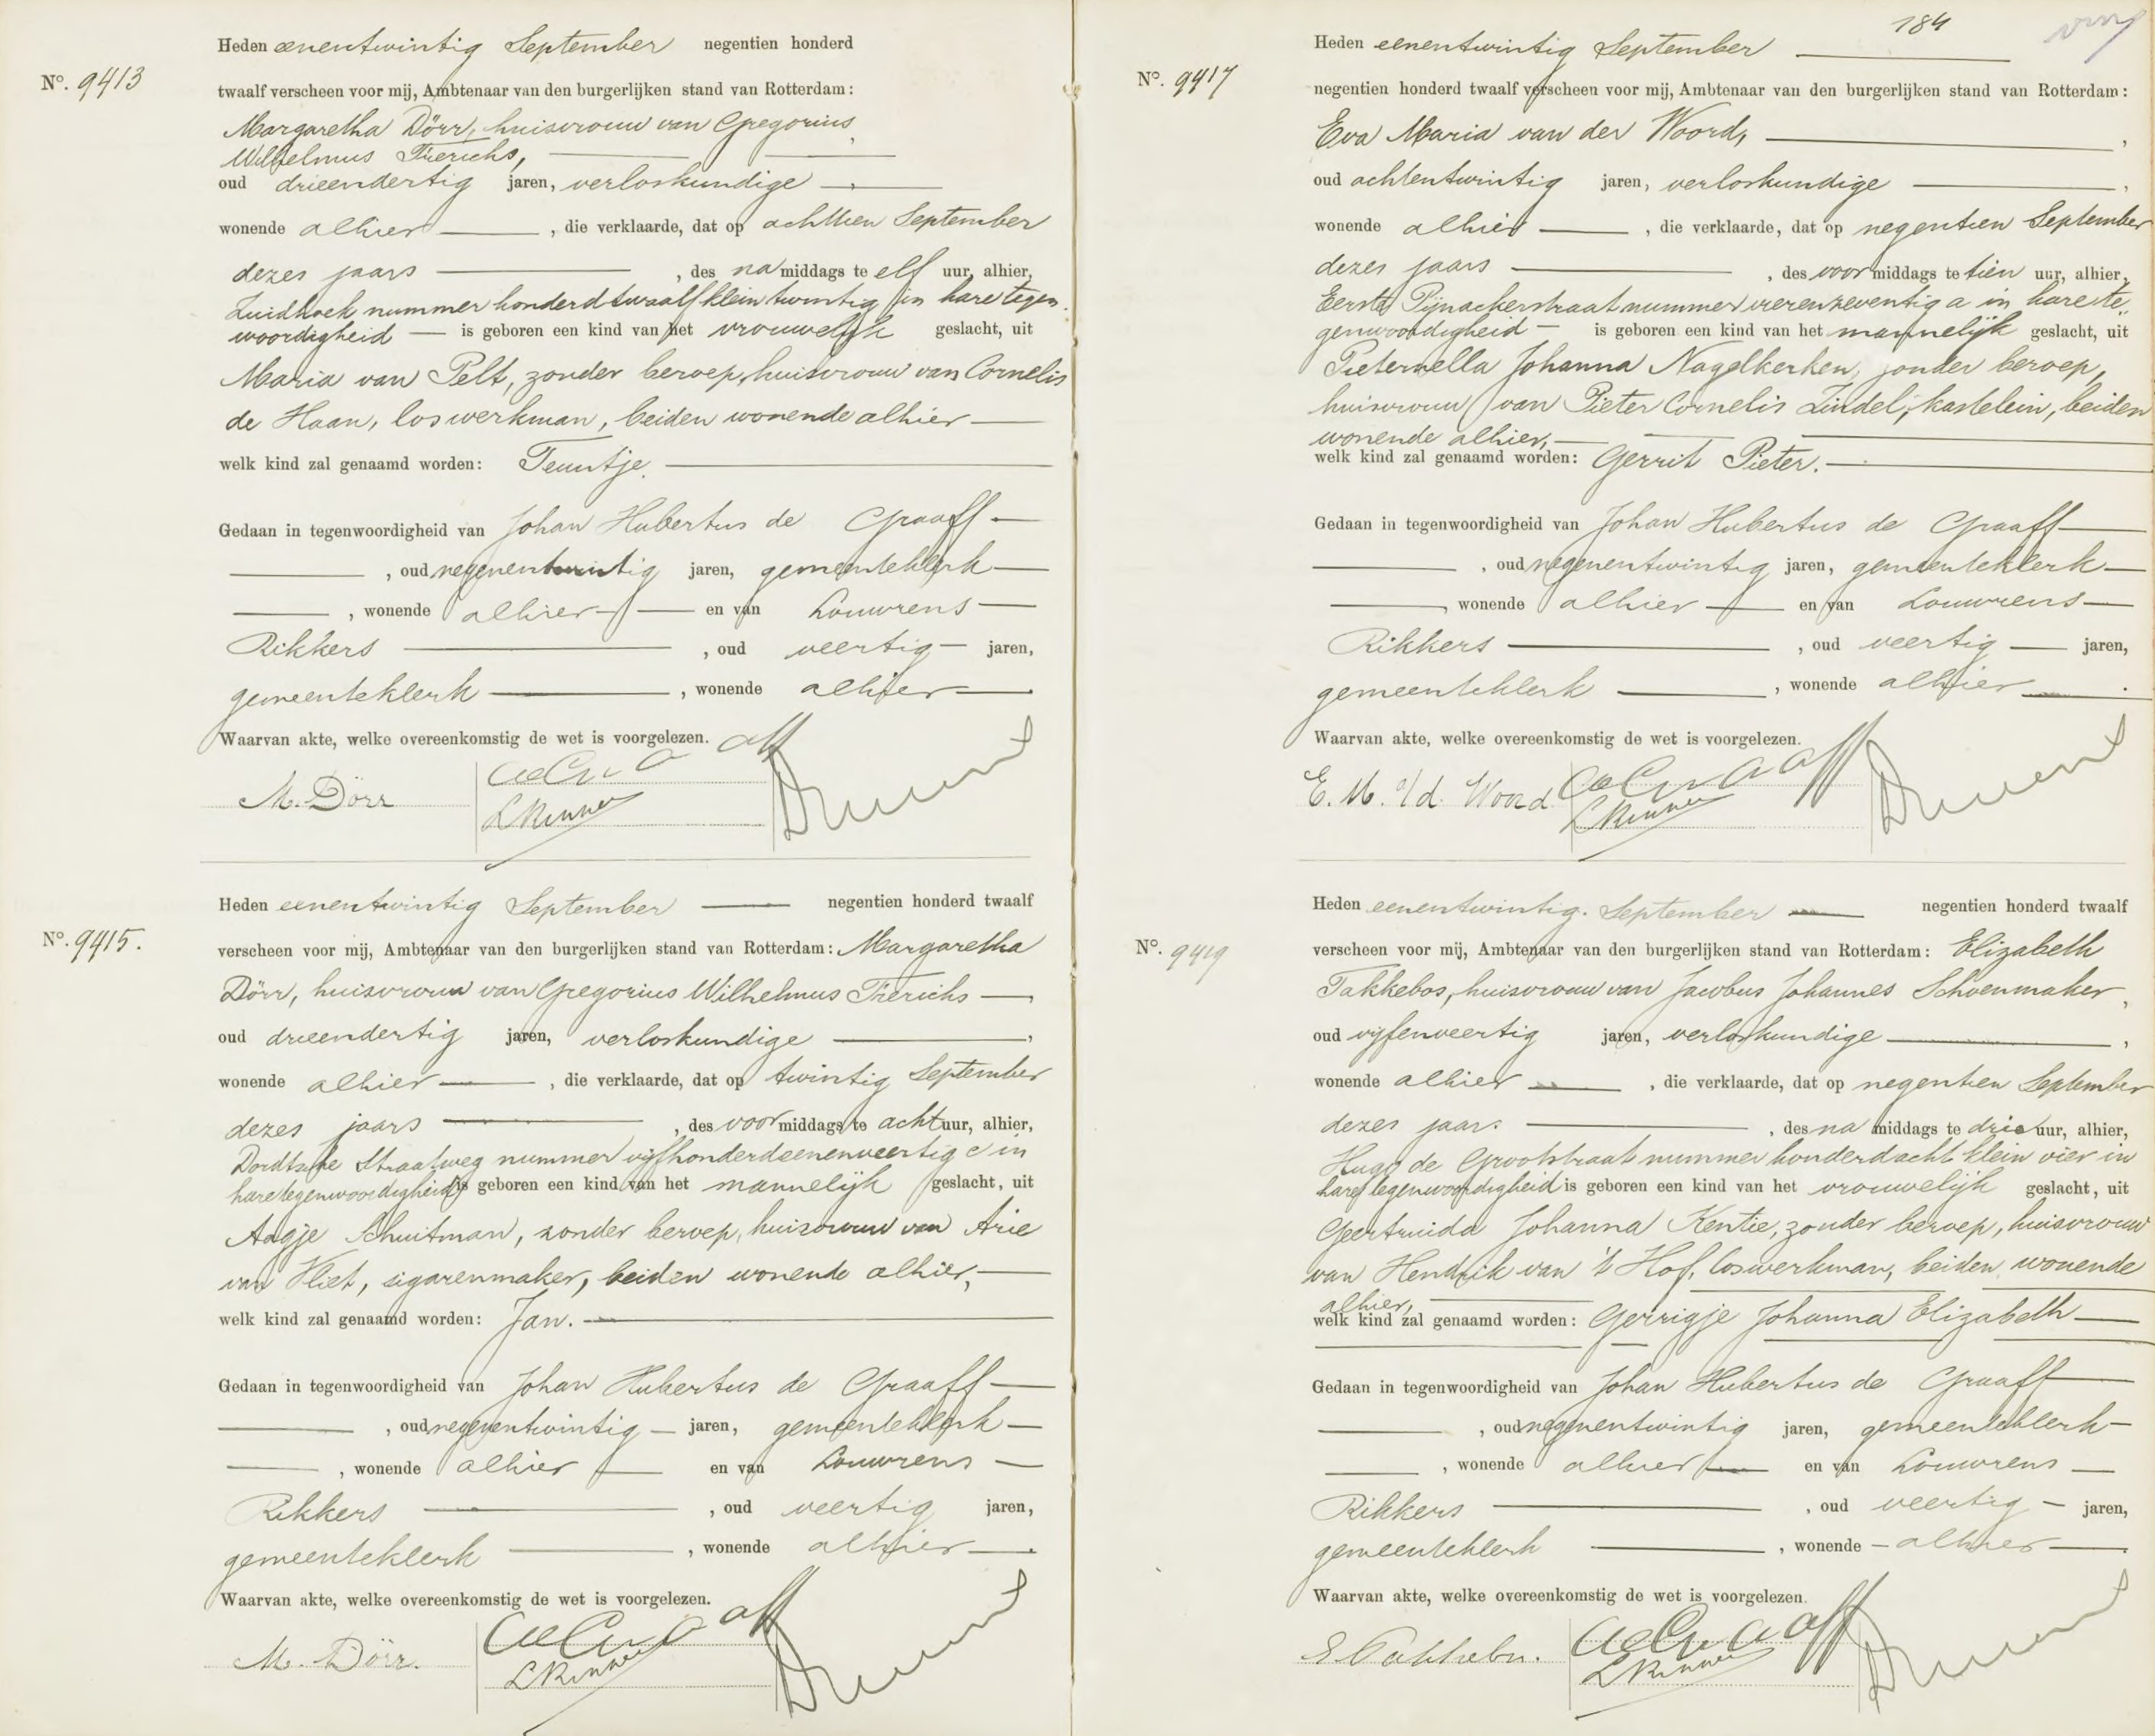 Heden eenentwintig September negentien honderd
N°. 9413
twaalf verscheen voor mij, Ambtenaar van den burgerlijken stand van Rotterdam:
Margaretha Dörr, huisvrouw van Gregorius
Wilhelmus Frerichs,
oud drieendertig jaren, verloskundige
wonende alhier, die verklaarde, dat op achttien September
dezes jaars, des namiddags te elf uur, alhier,
Zuidhoek nummer honderdtwaalf klein twintig in hare tegen
woordigheid is geboren een kind van het vrouwelijk geslacht, uit
Maria van Pelt, zonder beroep, huisvrouw van Cornelis
de Haan, loswerkman, beiden wonende alhier
welk kind zal genaamd worden: Teuntje.
Gedaan in tegenwoordigheid van Johan Hubertus de Graaff
, oud negenentwintig jaren, gemeenteklerk
, wonende alhier en van Louwrens
Rikkers, oud veertig jaren,
gemeenteklerk, wonende alhier.
Waarvan akte, welke overeenkomstig de wet is voorgelezen.
M. Dörr
Heden eenentwintig September negentien honderd twaalf
N°. 9415.
verscheen voor mij, Ambtenaar van den burgerlijken stand van Rotterdam: Margaretha
Dörr, huisvrouw van Gregorius Wilhelmus Frerichs,
oud drieendertig jaren, verloskundige,
wonende alhier, die verklaarde, dat op twintig September
dezes jaars, des voormiddags te acht uur, alhier,
Dordtsche Straatweg nummer vijfhonderdeenenveertig c in
hare tegenwoordigheid is geboren een kind van het mannelijk geslacht, uit
Aagje Schuitman, zonder beroep, huisvrouw van Arie
van Vliet, sigarenmaker, beiden wonende alhier,
welk kind zal genaamd worden: Jan.
Gedaan in tegenwoordigheid van Johan Hubertus de Graaff
, oud negenentwintig jaren, gemeenteklerk
, wonende alhier en van Louwrens
Rikkers, oud veertig jaren,
gemeenteklerk, wonende alhier.
Waarvan akte, welke overeenkomstig de wet is voorgelezen.
M. Dörr.
184
Heden eenentwintig September
N°. 9417
negentien honderd twaalf verscheen voor mij, Ambtenaar van den burgerlijken stand van Rotterdam:
Eva Maria van der Woord,
oud achtentwintig jaren, verloskundige,
wonende alhier, die verklaarde, dat op negentien September
dezes jaars, des voormiddags te tien uur, alhier,
Eerste Pijnackerstraat nummer vierenzeventig a in hare te
genwoordigheid is geboren een kind van het mannelijk geslacht, uit
Pieternella Johanna Nagelkerken, zonder beroep,
huisvrouw van Pieter Cornelis Zindel, kastelein, beiden
wonende alhier,
welk kind zal genaamd worden: Gerrit Pieter.
Gedaan in tegenwoordigheid van Johan Hubertus de Graaff
, oud negenentwintig jaren, gemeenteklerk
, wonende alhier en van Louwrens
Rikkers, oud veertig jaren,
gemeenteklerk, wonende alhier.
Waarvan akte, welke overeenkomstig de wet is voorgelezen.
E. M. v/d. Woord
Heden eenentwintig. September negentien honderd twaalf
N°. 9419
verscheen voor mij, Ambtenaar van den burgerlijken stand van Rotterdam: Elizabeth
Takkebos, huisvrouw van Jacobus Johannes Schoenmaker,
oud vijfenveertig jaren, verloskundige,
wonende alhier, die verklaarde, dat op negentien September
dezes jaars, des namiddags te drie uur, alhier,
Hugo de Grootstraat nummer honderdacht klein vier in
hare tegenwoordigheid is geboren een kind van het vrouwelijk geslacht, uit
Geertruida Johanna Kentie, zonder beroep, huisvrouw
van Hendrik van 't Hof, loswerkman, beiden wonende
alhier,
welk kind zal genaamd worden: Gerrigje Johanna Elizabeth
Gedaan in tegenwoordigheid van Johan Hubertus de Graaff
, oud negenentwintig jaren, gemeenteklerk
, wonende alhier en van Louwrens
Rikkers, oud veertig jaren,
gemeenteklerk, wonende alhier.
Waarvan akte, welke overeenkomstig de wet is voorgelezen.
E Takkebos.